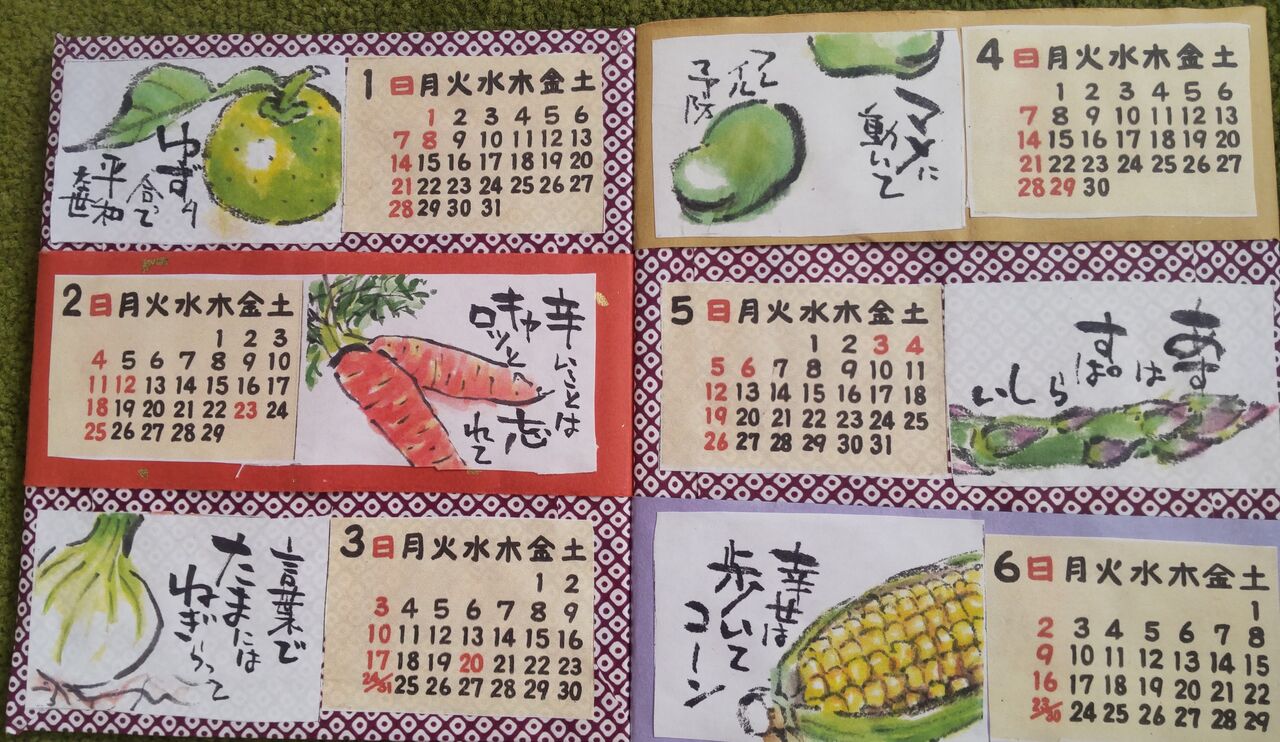 ゆずり
合って
平和
1 日 月 火 水 木 金 土
1 2 3 4 5 6
7 8 9 10 11 12 13
14 15 16 17 18 19 20
21 22 23 24 25 26 27
28 29 30 31
2 日 月 火 水 木 金 土
1 2 3
4 5 6 7 8 9 10
11 12 13 14 15 16 17
18 19 20 21 22 23 24
25 26 27 28 29
辛いことは
キャロッと
忘れて
言葉で
たまには
ねぎらって
3 日 月 火 水 木 金 土
1 2
3 4 5 6 7 8 9
10 11 12 13 14 15 16
17 18 19 20 21 22 23
24/31 25 26 27 28 29 30
マメに
動いて
フレイル
予防
4 日 月 火 水 木 金 土
1 2 3 4 5 6
7 8 9 10 11 12 13
14 15 16 17 18 19 20
21 22 23 24 25 26 27
28 29 30
5 日 月 火 水 木 金 土
1 2 3 4
5 6 7 8 9 10 11
12 13 14 15 16 17 18
19 20 21 22 23 24 25
26 27 28 29 30 31
あす
は
すぱ
らしい
幸せは
歩いて
コーン
6 日 月 火 水 木 金 土
1
2 3 4 5 6 7 8
9 10 11 12 13 14 15
16 17 18 19 20 21 22
23/30 24 25 26 27 28 29